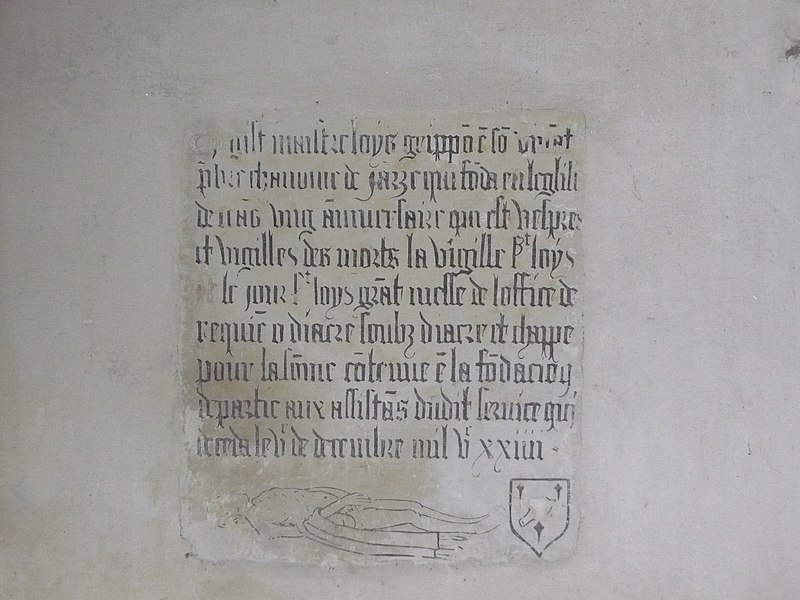 Cy gist maistre loys geippō ē sō vivāt
pbre chanoine de Jarze qui fōda en leglise
de ceās ung āniversaire qui est vespres
et vigilles des morts la vigille St loys
et le jour St loys grāt messe de loffice de
requiē o diacre soubz diacre et chappe
pour la sōme cōtenue ē la fōdacion
departie aux assistās dudit service qui
deceda le vᵉ de decembre mil vᶜ xxiiii